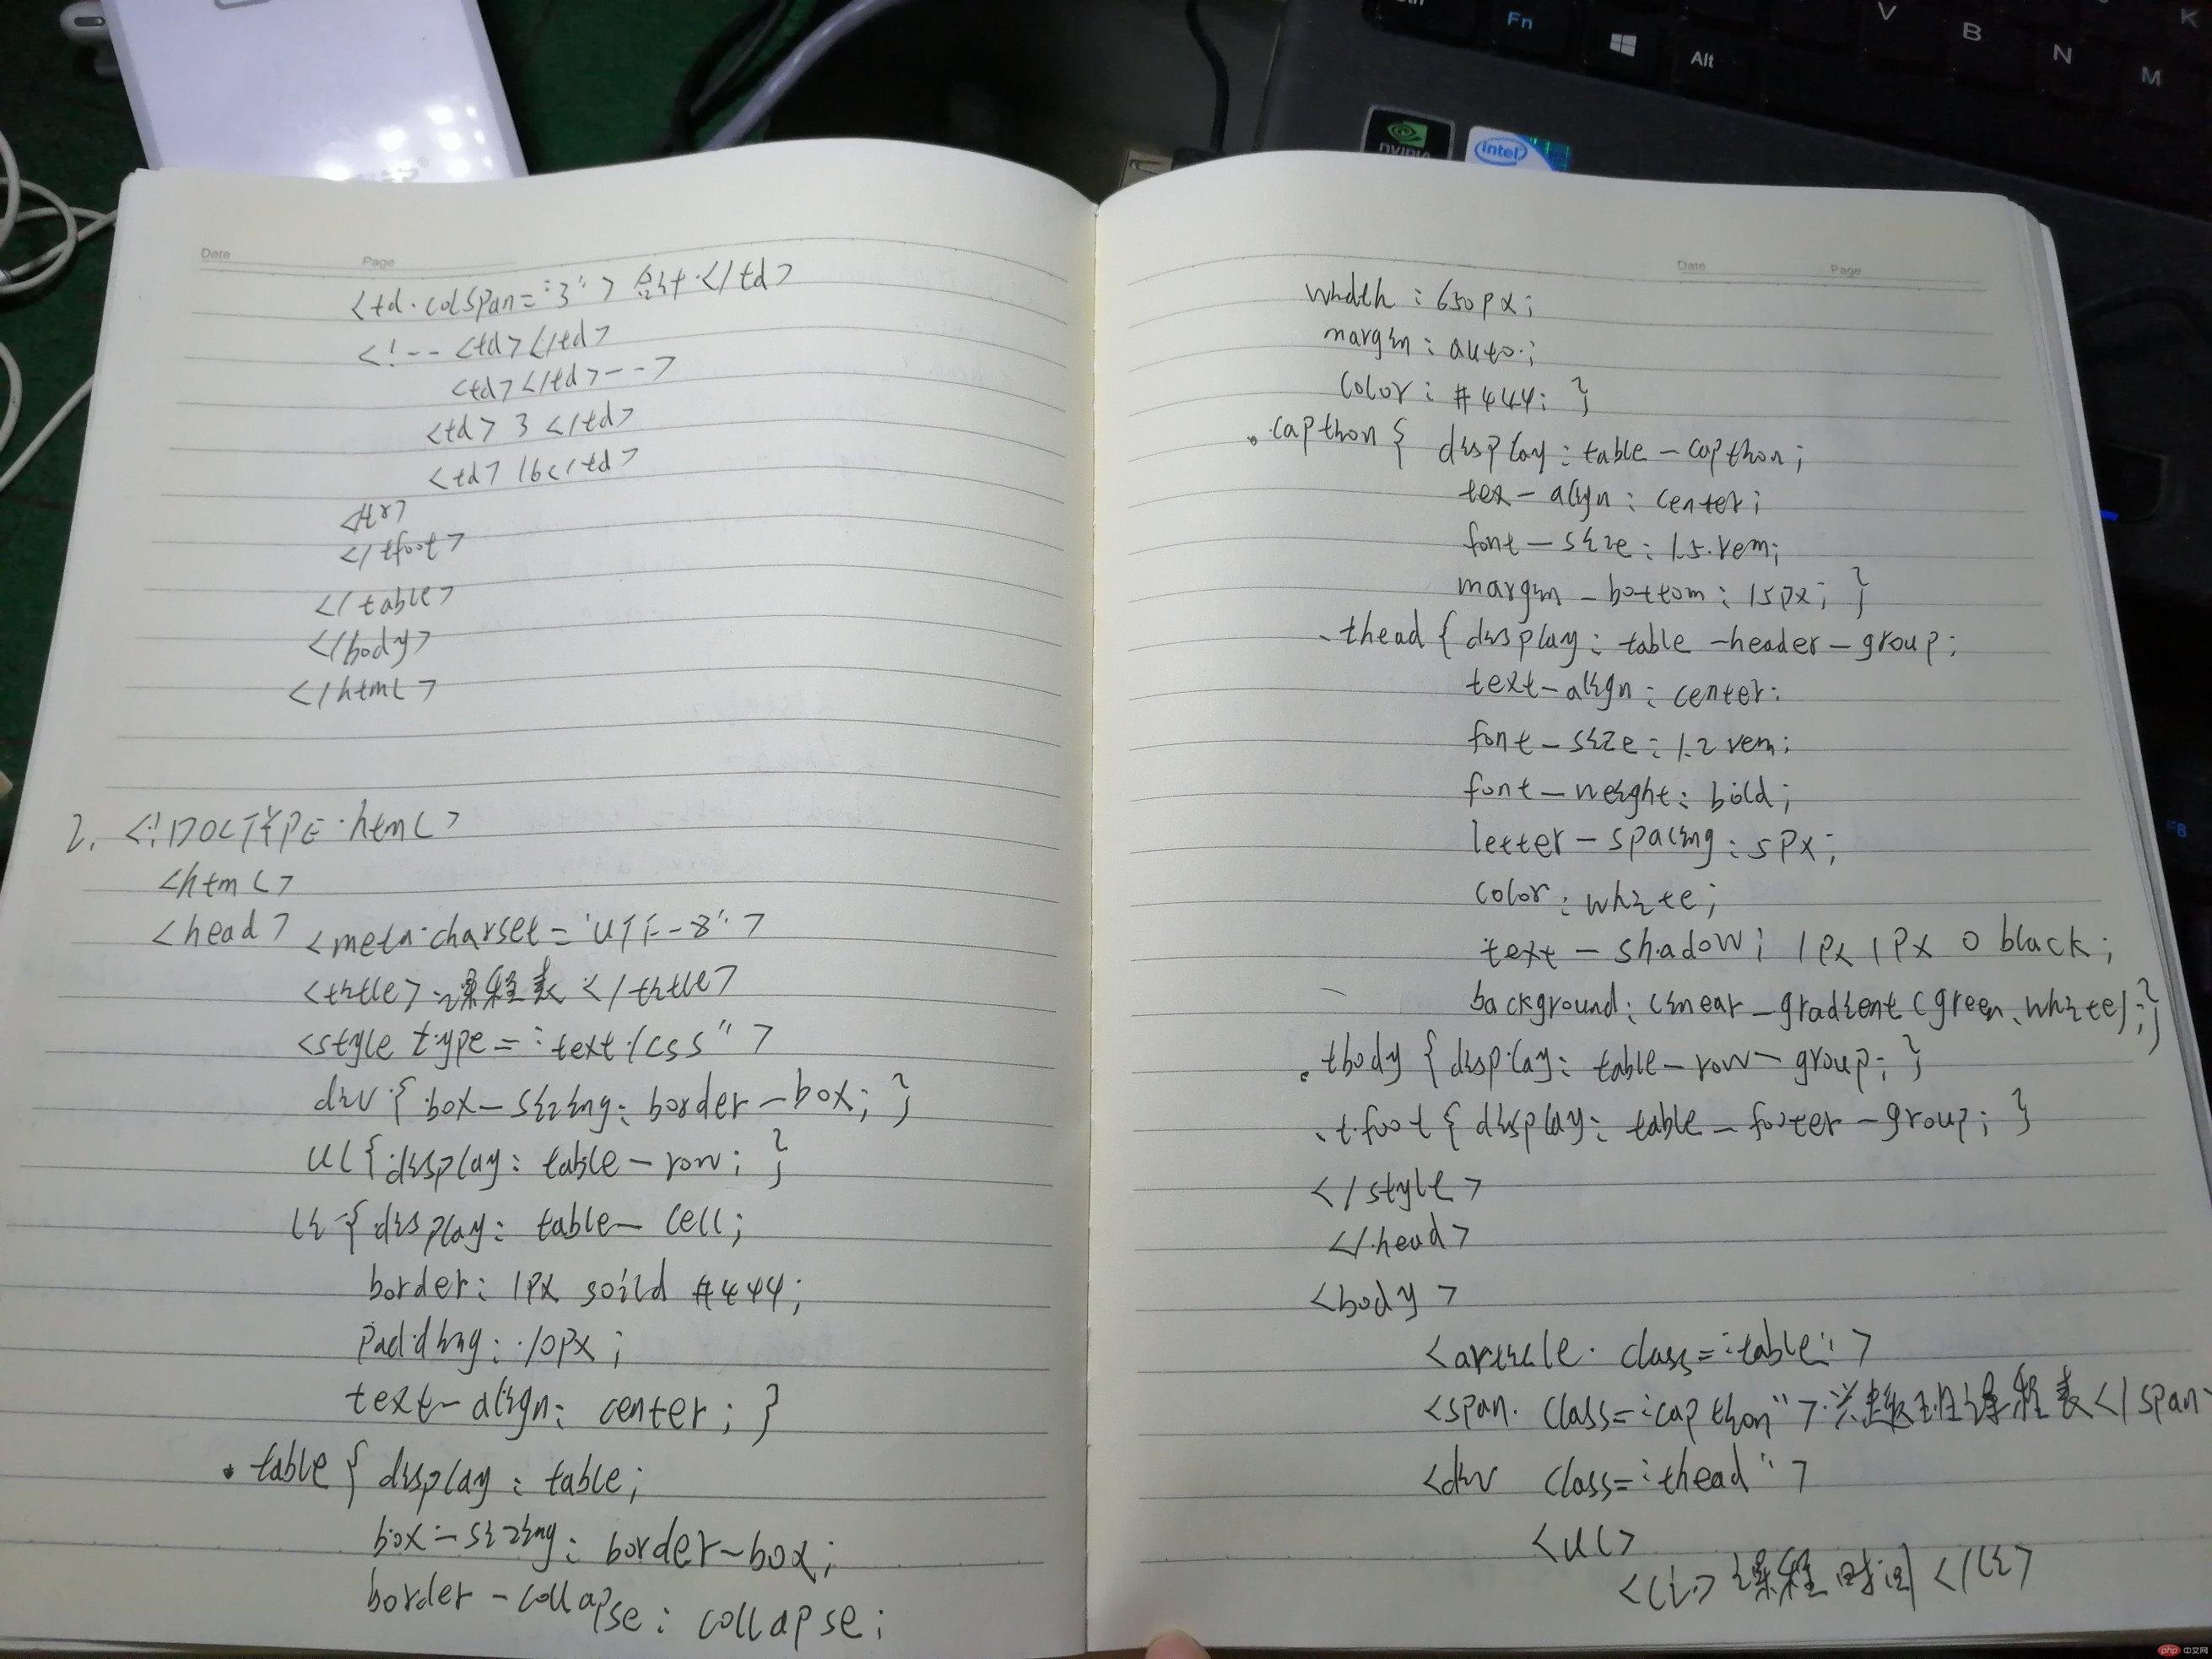 Date Page
<td colspan="3"> 合计</td>
<!-- <td></td>
<td></td>-->
<td> 3 </td>
<td> 16</td>
</tfoot>
</table>
</body>
</html>
2. <!DOCTYPE html>
<html>
<head> <meta charset="UTF-8">
<title>课程表</title>
<style type="text/css">
div { box-sizing: border-box; }
ul{display: table-row; }
li {display: table-cell;
border: 1px soild #444;
padding: 10px;
text-align: center; }
.table { display: table;
box-sizing: border-box;
border-collapse: collapse;
Date Page
width: 650px;
margin: auto;
color: #444; }
.caption { display: table-caption;
tex-align: center;
font-size: 1.5rem;
margin-bottom: 15px; }
.thead { display: table-header-group;
text-align: center;
font-size: 1.2rem;
font-weight: bold;
letter-spacing: 5px;
color: white;
text-shadow: 1px 1px 0 black;
background: linear-gradient (green, white); }
.tbody { display: table-row-group; }
.tfoot { display: table-footer-group; }
</style>
</head>
<body>
<article class="table">
<span class="caption"> 课程表</span
<div class="thead">
<ul>
<li>课程时间</li>
Fn Alt V B N M K
NVIDIA intel
F8
php 中文网